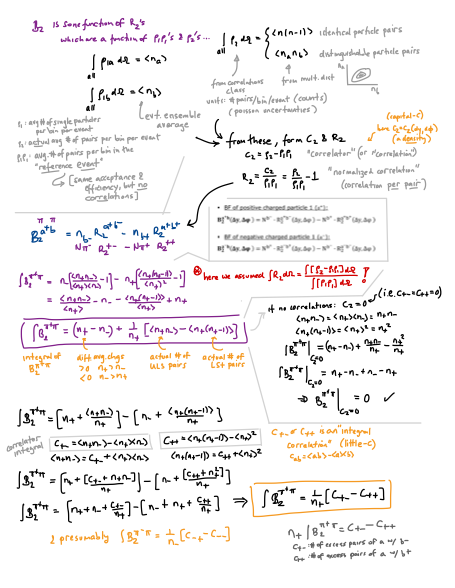 B₂ is some function of R₂'s
which are a function of ρ₁ρ₁'s & ρ₂'s...
∫all ρ₁a dΩ = <nₐ>
∫all ρ₁b dΩ = <n_b>
evt. ensemble average
∫all ρ₂ dΩ = { <n(n-1)> identical particle pairs
<nₐn_b> distinguishable particle pairs
from correlations class
from mult. dist
units: #pairs/bin/event (counts)
(poisson uncertainties)
ρ₁: avg # of single particles per bin per event
ρ₂: actual avg # of pairs per bin per event
ρ₁ρ₁: avg. # of pairs per bin in the "reference event"
[same acceptance & efficiency, but no correlations]
→ from these, form C₂ & R₂
(capital-C)
here C₂=C₂(Δy,Δφ)
(a density)
C₂ = ρ₂-ρ₁ρ₁ "correlator" (or "correlation")
R₂ = C₂/ρ₁ρ₁ = ρ₂/ρ₁ρ₁ - 1 "normalized correlator"
(correlation per pair)
B₂^{a+b} = n_b- R₂^{a+b-} - n_b+ R₂^{a+b+}
• BF of positive charged particle 1 (π⁺):
• BF of negative charged particle 1 (π⁻):
∫B₂^{π⁺π} = n₋[<n₊n₋>/<n₊><n₋> - 1] - n₊[<n₊(n₊-1)>/<n₊>² - 1]
⊗ here we assumed ∫R₂dΩ = ∫[ρ₂-ρ₁ρ₁]dΩ / ∫[ρ₁ρ₁]dΩ !
= <n₊n₋>/<n₊> - n₋ - <n₊(n₊-1)>/<n₊> + n₊
∫B₂^{π⁺π} = (n₊-n₋) + 1/n₊ [<n₊n₋> - <n₊(n₊-1)>]
integral of B₂^{π⁺π}
diff avg. chgs
>0 n₊>n₋
<0 n₋>n₊
actual # of ULS pairs
actual # of LS+ pairs
if no correlations: C₂=0 (i.e. C₊₋=C₊₊=0)
<n₊n₋> = <n₊><n₋> = n₊n₋
<n₊(n₊-1)> = <n₊>² = n₊²
∫B₂^{π⁺π}|C₂=0 = (n₊-n₋) + n₊n₋/n₊ - n₊²/n₊
∫B₂^{π⁺π}|C₂=0 = n₊-n₋+n₋-n₊
⇒ B₂^{π⁺π}|C₂=0 = 0 ✓
∫B₂^{π⁺π} = [n₊ + <n₊n₋>/n₊] - [n₋ + <n₊(n₊-1)>/n₊]
correlator integral
C₊₋ = <n₊n₋> - <n₊><n₋>
<n₊n₋> = C₊₋ + <n₊><n₋>
C₊₊ = <n₊(n₊-1)> - <n₊>²
<n₊(n₊-1)> = C₊₊ + <n₊>²
C₊₋ or C₊₊ is an "integral correlation" (little-c)
c_ab = <ab> - <a><b>
∫B₂^{π⁺π} = [n₊ + [C₊₋ + n₊n₋]/n₊] - [n₋ + [C₊₊ + n₊²]/n₊]
∫B₂^{π⁺π} = [n₊ + n₋ + C₊₋/n₊] - [n₋ + n₊ + C₊₊/n₊] ⇒ ∫B₂^{π⁺π} = 1/n₊ [C₊₋ - C₊₊]
& presumably ∫B₂^{π⁻π} = 1/n₋ [C₋₊ - C₋₋]
n₊∫B₂^{π⁺π} = C₊₋ - C₊₊
C₊₋: # of excess pairs of a w/ b-
C₊₊: # of excess pairs of a w/ b+